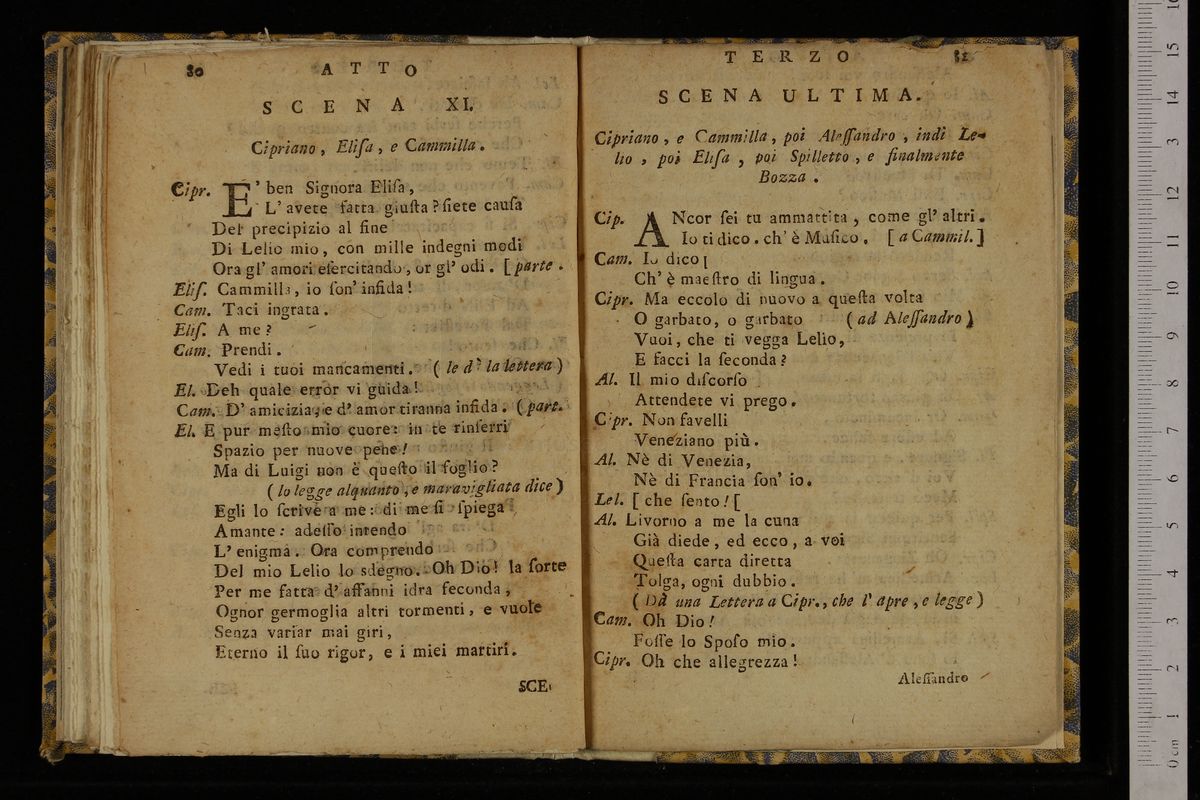 80 ATTO
SCENA XI.
Cipriano, Eliſa, e Cammilla.
Cipr. E' ben Signora Eliſa,
L' avete fatta giuſta? ſiete cauſa
Del precipizio al fine
Di Lelio mio, con mille indegni modi
Ora gl' amori eſercitando, or gl' odi. [ parte.
Eliſ. Cammilla, io ſon' infida!
Cam. Taci ingrata.
Eliſ. A me?
Cam. Prendi.
Vedi i tuoi mancamenti. ( le dà la lettera )
El. Deh quale error vi guida!
Cam. D' amicizia, e d' amor tiranna infida. ( part.
El. E pur meſto mio cuore: in te rinſerri
Spazio per nuove pene!
Ma di Luigi non è queſto il foglio?
( lo legge alquanto, e maravigliata dice )
Egli lo ſcrive a me: di me ſi ſpiega
Amante: adeſſo intendo
L' enigma. Ora comprendo
Del mio Lelio lo sdegno. Oh Dio! la ſorte
Per me fatta d' affanni idra feconda,
Ognor germoglia altri tormenti, e vuole
Senza variar mai giri,
Eterno il ſuo rigor, e i miei martiri.
SCE-
TERZO 81
SCENA ULTIMA.
Cipriano, e Cammilla, poi Aleſſandro, indi Le-
lio, poi Eliſa, poi Spilletto, e finalmente
Bozza.
Cip. ANcor ſei tu ammattita, come gl' altri.
Io ti dico. ch' è Muſico. [ a Cammil. ]
Cam. Io dico
Ch' è maeſtro di lingua.
Cipr. Ma eccolo di nuovo a queſta volta
O garbato, o garbato ( ad Aleſſandro )
Vuoi, che ti vegga Lelio,
E facci la ſeconda?
Al. Il mio diſcorſo
Attendete vi prego.
Cipr. Non favelli
Veneziano più.
Al. Nè di Venezia,
Nè di Francia ſon' io.
Lel. [ che ſento! [
Al. Livorno a me la cuna
Già diede, ed ecco, a voi
Queſta carta diretta
Tolga, ogni dubbio.
( Dà una Lettera a Cipr., che l' apre, e legge )
Cam. Oh Dio!
Foſſe lo Spoſo mio.
Cipr. Oh che allegrezza!
Aleſſandro
0 cm 1 2 3 4 5 6 7 8 9 10 11 12 13 14 15 16